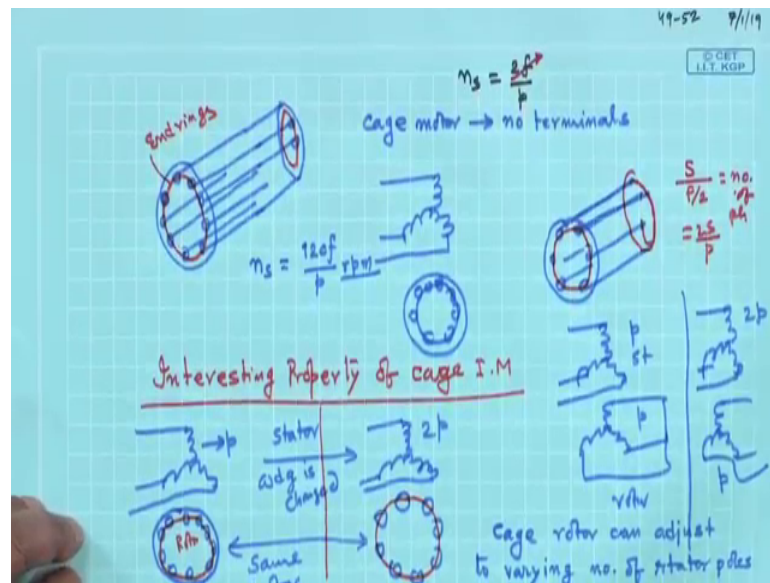 49-52 8/1/19
© CET
I.I.T. KGP
ns = 2f/p
End rings
cage motor → no terminals
S/(P/2) = no. of ph
= 2S/p
ns = 120f/p rpm
Interesting Property of cage I.M
→p
stator
wdg is
changed
2p
p
st
2p
p
p
rotor
Rotor
same
cage rotor can adjust
to varying no. of stator poles